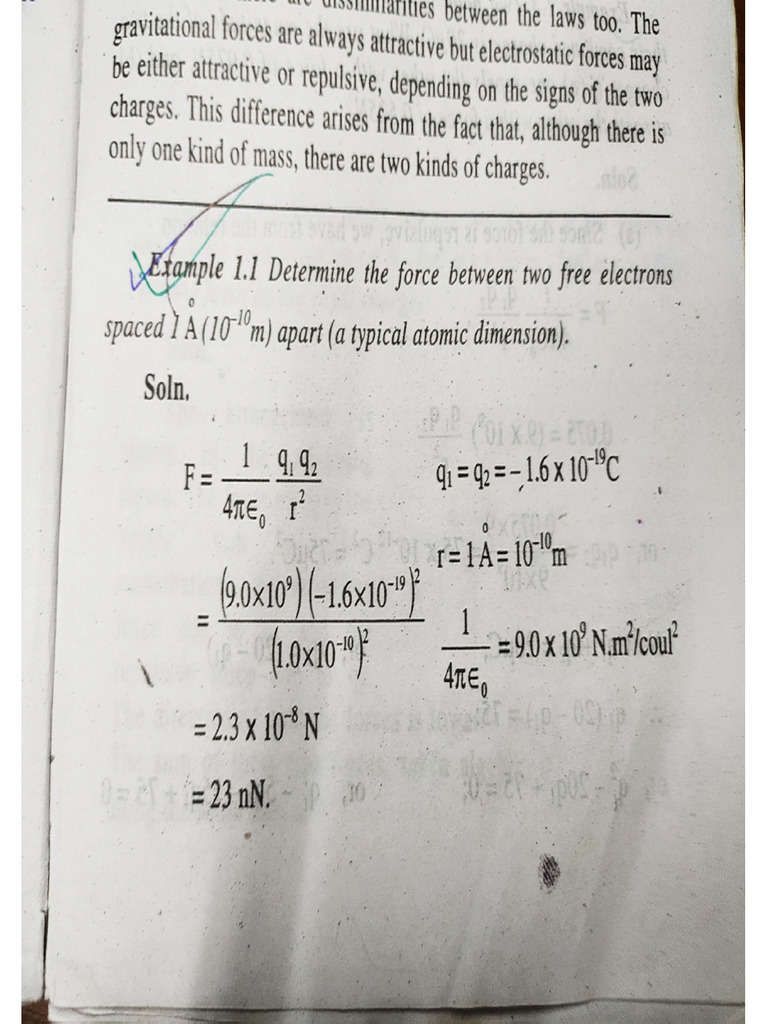 dissimilarities between the laws too. The
gravitational forces are always attractive but electrostatic forces may
be either attractive or repulsive, depending on the signs of the two
charges. This difference arises from the fact that, although there is
only one kind of mass, there are two kinds of charges.
Example 1.1 Determine the force between two free electrons
spaced 1 Å (10⁻¹⁰m) apart (a typical atomic dimension).
Soln.
F = 1/4πϵ₀ q₁ q₂/r² q₁ = q₂ = – 1.6 x 10⁻¹⁹C
r = 1 Å = 10⁻¹⁰m
= (9.0×10⁹) (–1.6×10⁻¹⁹)²/(1.0×10⁻¹⁰)² 1/4πϵ₀ = 9.0 x 10⁹ N.m²/coul²
= 2.3 x 10⁻⁸ N
= 23 nN.